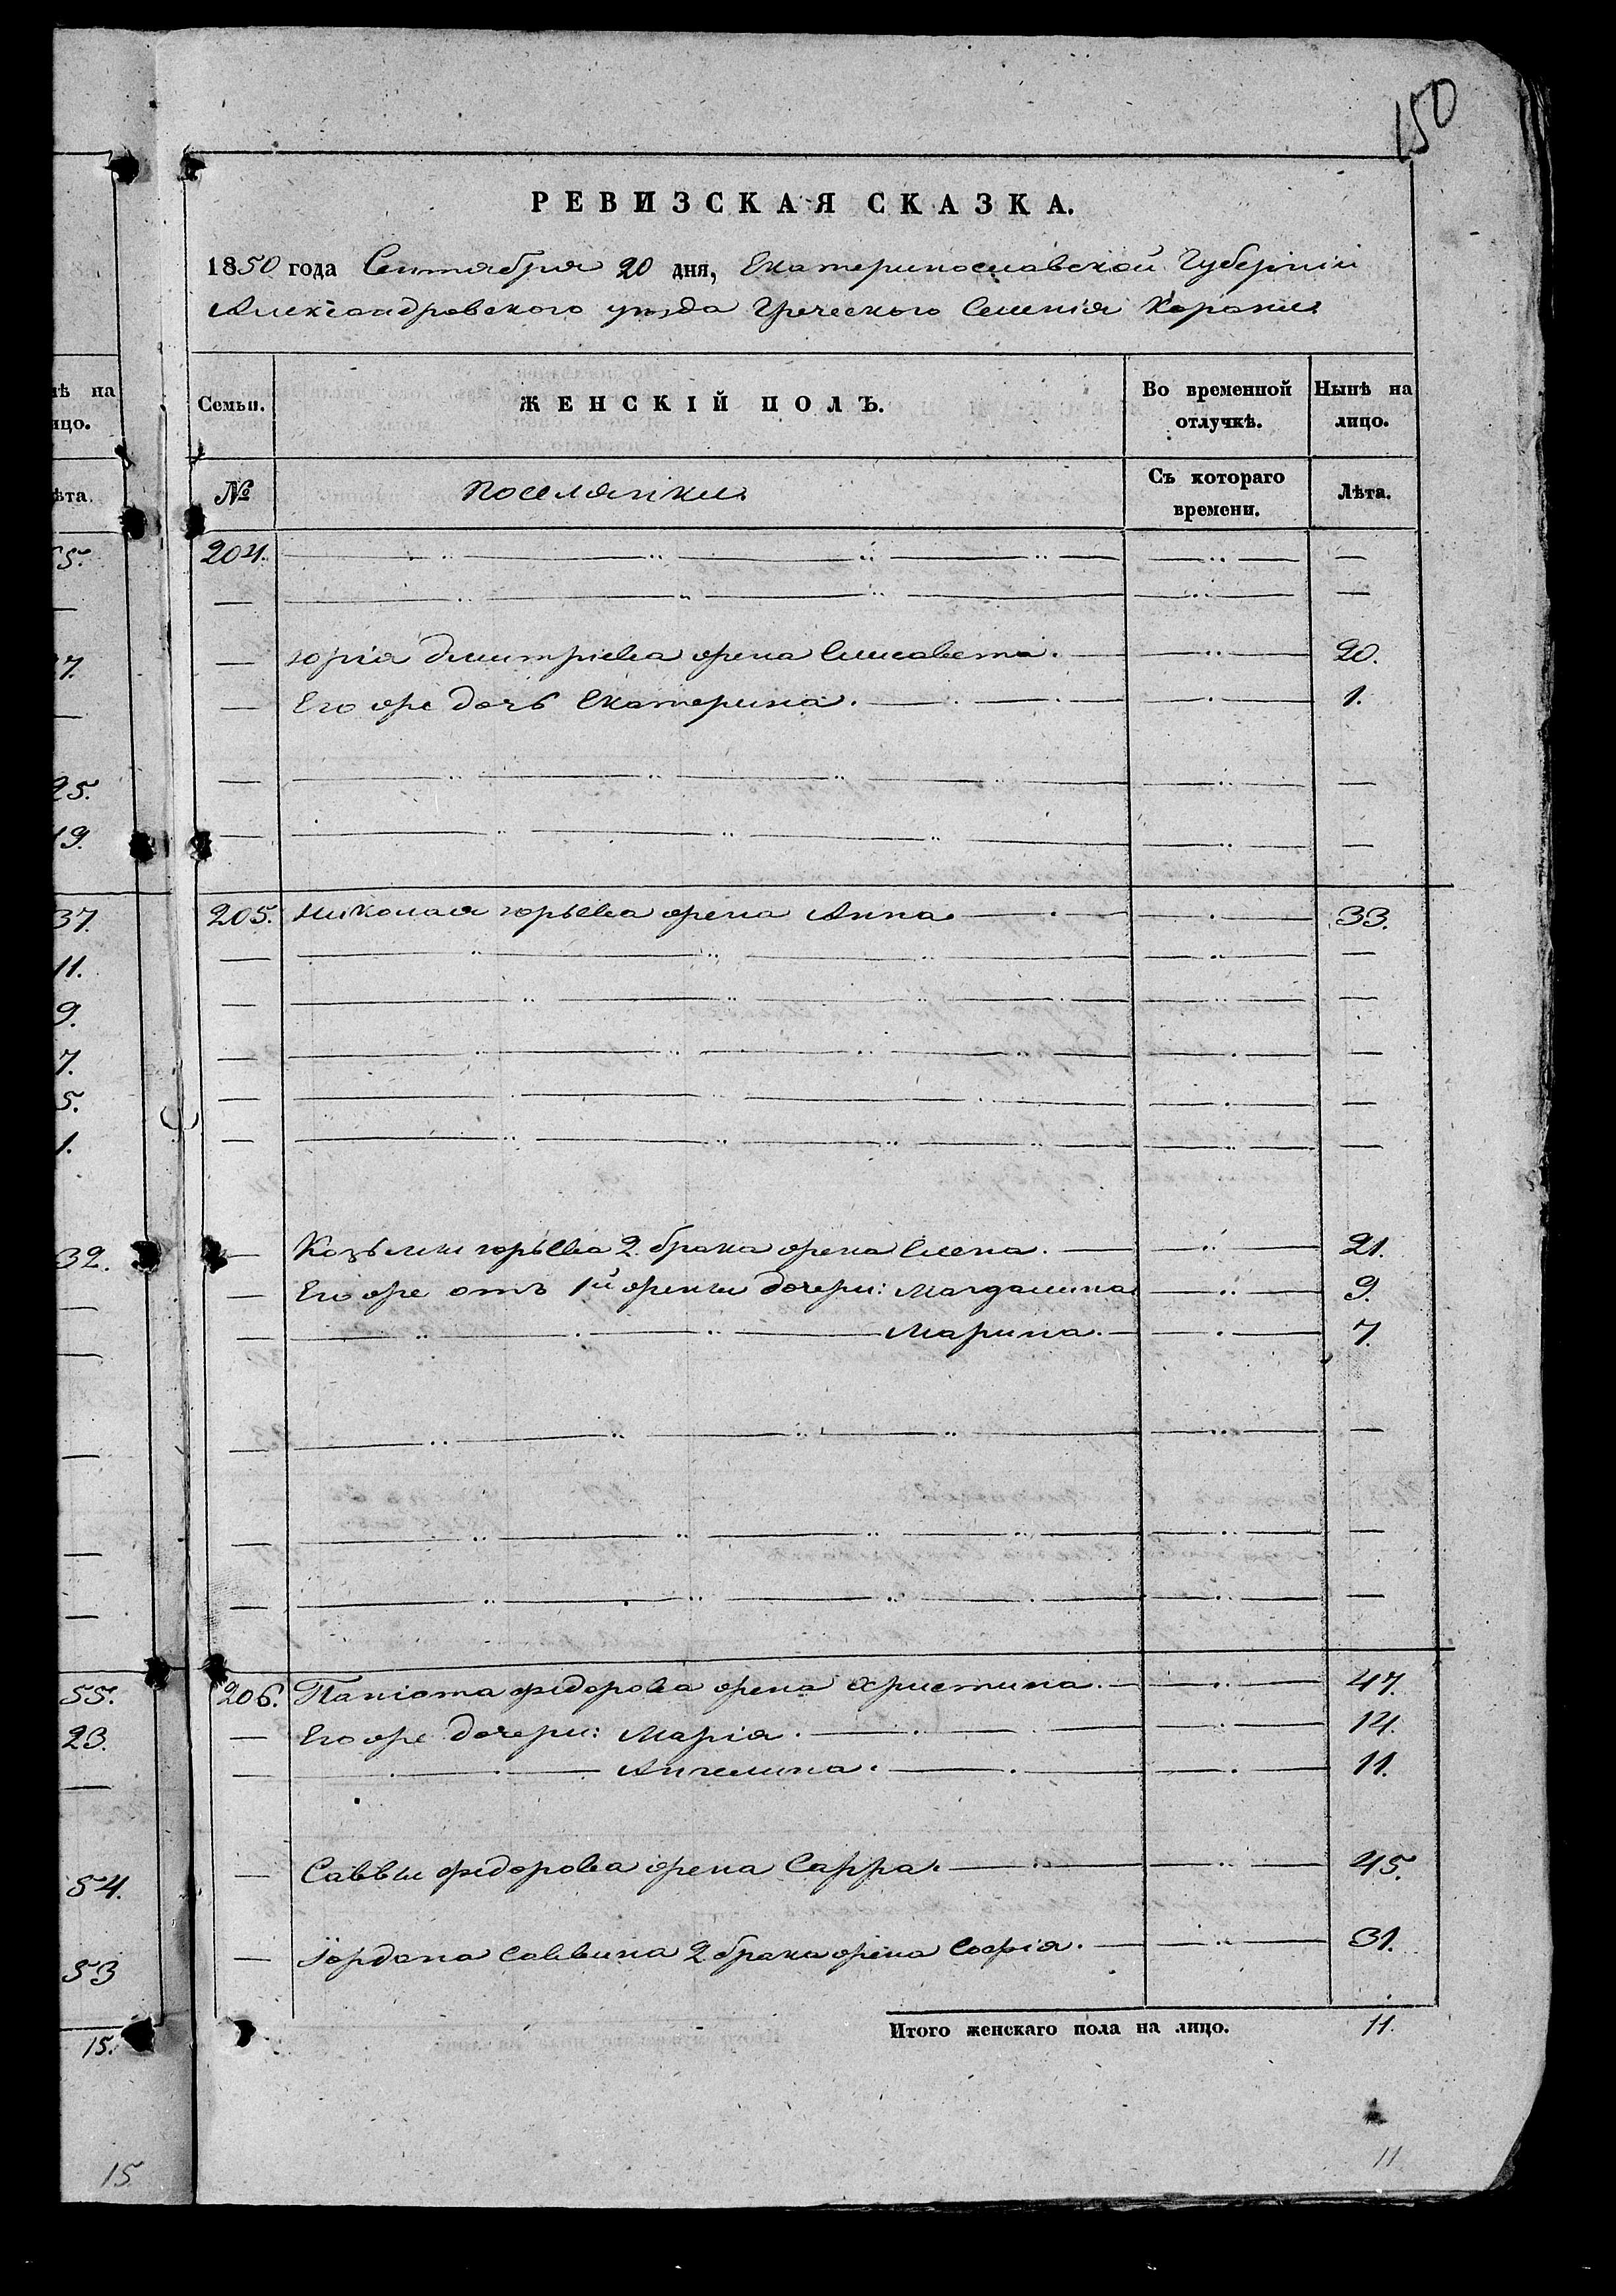 150
РЕВИЗСКАЯ СКАЗКА.
1850 года Сентября 20 дня, Екатеринославской Губерніи
Александровского уѣзда Греческого Селенія Карани
нѣ на
лицо.
Семьи. ЖЕНСКІЙ ПОЛЪ. Во временной отлучкѣ. Нынѣ на лицо.
ѣта.
№ Поселянки Съ котораго времени. Лѣта.
5. 204.
7. Юрія Дмитріева жена Елисавета. 20.
Его же дочь Екатерина. 1.
25.
19.
37. 205. Николая Юрьева жена Анна. 33.
11.
9.
7.
5.
1.
32. Козьмы Юрьева 2. брака жена Елена. 21.
Его же отъ 1й жены дочери: Магдалина 9.
Марина. 7.
55. 206. Паніота Федорова жена Христина. 47.
23. Его же дочери: Марія. 14.
Ангелина. 11.
54. Саввы Федорова жена Сарра. 45.
53 Іордана Саввина 2 брака жена Софія. 31.
15. Итого женскаго пола на лицо. 11.
15 11